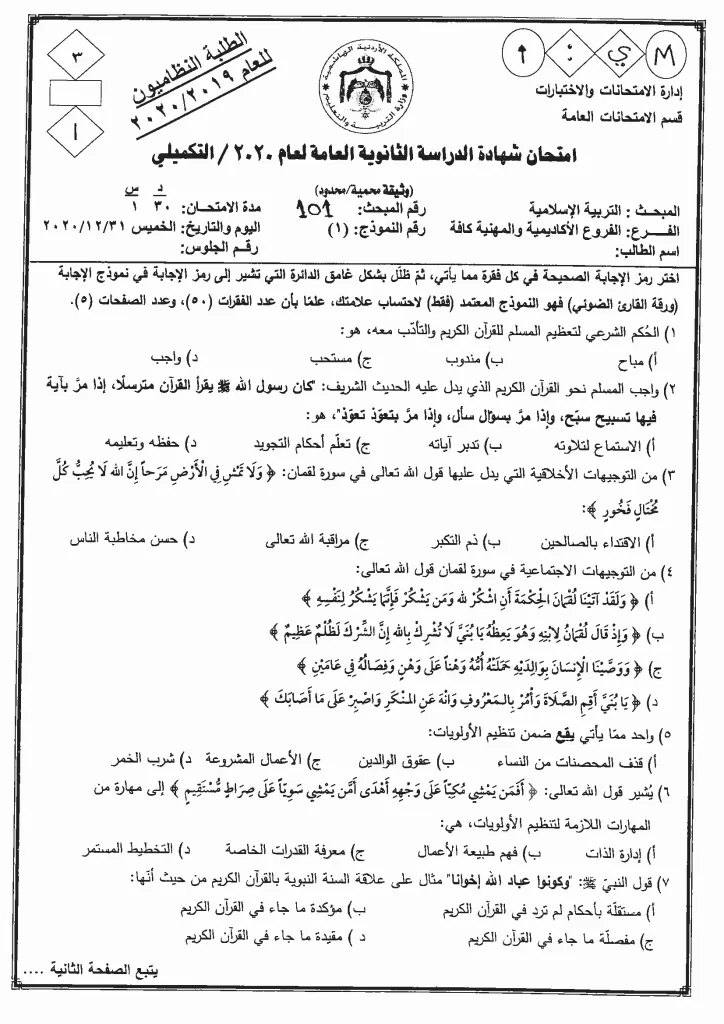 ٣
أ
الطلبة النظاميون
للعام ٢٠٢٠/٢٠١٩
المملكة الأردنية الهاشمية
وزارة التربية والتعليم
M ي أ
إدارة الامتحانات والاختبارات
قسم الامتحانات العامة
امتحان شهادة الدراسة الثانوية العامة لعام ٢٠٢٠ / التكميلي
(وثيقة محمية/محدود)
د س
المبحث : التربية الإسلامية رقم المبحث: 101 مدة الامتحان: ٣٠ ١
الفـــرع: الفروع الأكاديمية والمهنية كافة رقم النموذج: (١) اليوم والتاريخ: الخميس ٢٠٢٠/١٢/٣١
اسم الطالب: رقـم الجلوس:
اختر رمز الإجابة الصحيحة في كل فقرة مما يأتي، ثمّ ظلّل بشكل غامق الدائرة التي تشير إلى رمز الإجابة في نموذج الإجابة
(ورقة القارئ الضوئي) فهو النموذج المعتمد (فقط) لاحتساب علامتك، علمًا بأن عدد الفقرات (٥٠)، وعدد الصفحات (٥).
١) الحُكم الشرعي لتعظيم المسلم للقرآن الكريم والتأدّب معه، هو:
أ) مباح ب) مندوب ج) مستحب د) واجب
٢) واجب المسلم نحو القرآن الكريم الذي يدل عليه الحديث الشريف: "كان رسول الله ﷺ يقرأ القرآن مترسلًا، إذا مرَّ بآية
فيها تسبيح سبّح، وإذا مرَّ بسؤال سأل، وإذا مرَّ بتعوّذ تعوّذ"، هو:
أ) الاستماع لتلاوته ب) تدبر آياته ج) تعلّم أحكام التجويد د) حفظه وتعليمه
٣) من التوجيهات الأخلاقية التي يدل عليها قول الله تعالى في سورة لقمان: ﴿ وَلَا تَمْشِ فِي الْأَرْضِ مَرَحاً إِنَّ اللَّهَ لَا يُحِبُّ كُلَّ
مُخْتَالٍ فَخُورٍ ﴾:
أ) الاقتداء بالصالحين ب) ذم التكبر ج) مراقبة الله تعالى د) حسن مخاطبة الناس
٤) من التوجيهات الاجتماعية في سورة لقمان قول الله تعالى:
أ) ﴿ وَلَقَدْ آتَيْنَا لُقْمَانَ الْحِكْمَةَ أَنِ اشْكُرْ لله وَمَن يَشْكُرْ فَإِنَّمَا يَشْكُرُ لِنَفْسِهِ ﴾
ب) ﴿ وَإِذْ قَالَ لُقْمَانُ لِابْنِهِ وَهُوَ يَعِظُهُ يَا بُنَيَّ لَا تُشْرِكْ بِالله إِنَّ الشِّرْكَ لَظُلْمٌ عَظِيمٌ ﴾
ج) ﴿ وَوَصَّيْنَا الْإِنسَانَ بِوَالِدَيْهِ حَمَلَتْهُ أُمُّهُ وَهْناً عَلَى وَهْنٍ وَفِصَالُهُ فِي عَامَيْنِ ﴾
د) ﴿ يَا بُنَيَّ أَقِمِ الصَّلَاةَ وَأْمُرْ بِالْمَعْرُوفِ وَانْهَ عَنِ الْمُنكَرِ وَاصْبِرْ عَلَى مَا أَصَابَكَ ﴾
٥) واحد ممّا يأتي يقع ضمن تنظيم الأولويات:
أ) قذف المحصنات من النساء ب) عقوق الوالدين ج) الأعمال المشروعة د) شرب الخمر
٦) يُشير قول الله تعالى: ﴿ أَفَمَن يَمْشِي مُكِبّاً عَلَى وَجْهِهِ أَهْدَى أَمَّن يَمْشِي سَوِيّاً عَلَى صِرَاطٍ مُّسْتَقِيمٍ ﴾ إلى مهارة من
المهارات اللازمة لتنظيم الأولويات، هي:
أ) إدارة الذات ب) فهم طبيعة الأعمال ج) معرفة القدرات الخاصة د) التخطيط المستمر
٧) قول النبيّ ﷺ: "وكونوا عباد الله إخوانا" مثال على علاقة السنة النبوية بالقرآن الكريم من حيث أنّها:
أ) مستقلّة بأحكام لم ترد في القرآن الكريم ب) مؤكدة ما جاء في القرآن الكريم
ج) مفصلّة ما جاء في القرآن الكريم د ) مقيدة ما جاء في القرآن الكريم
يتبع الصفحة الثانية ....